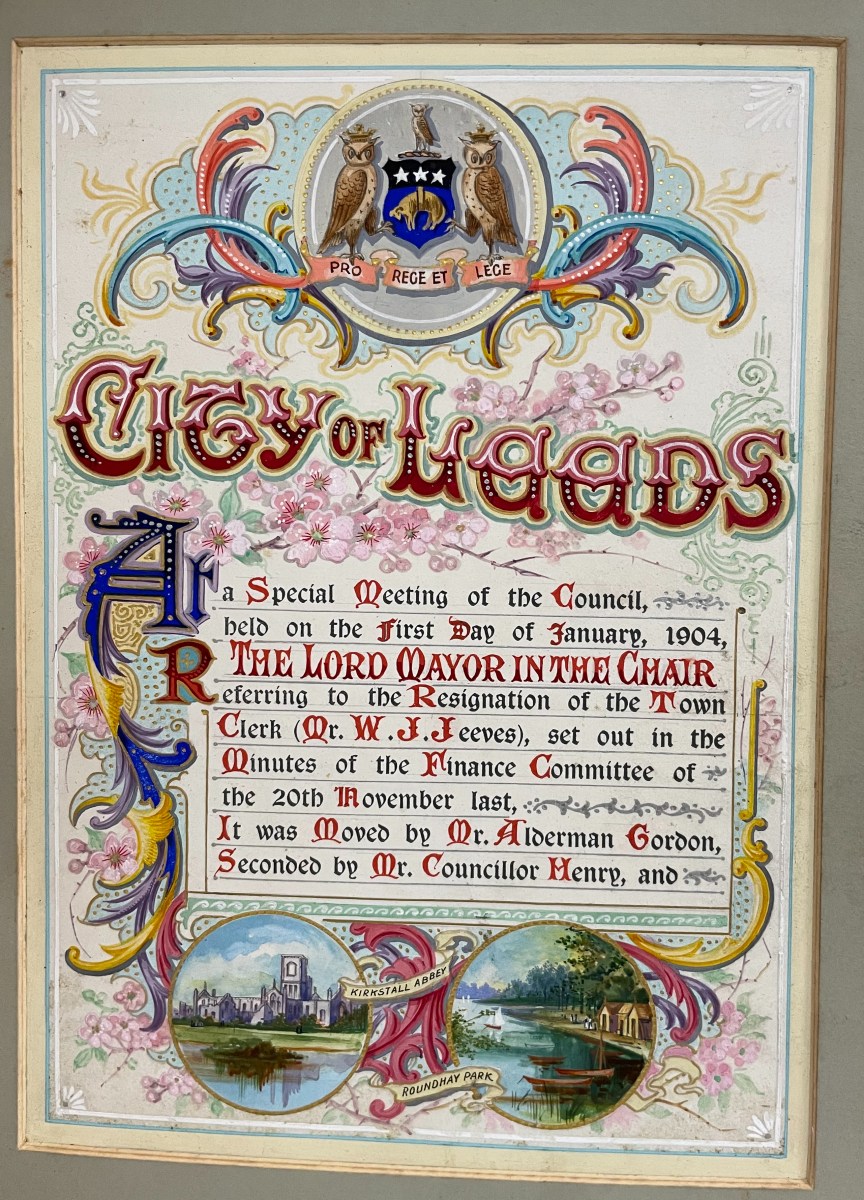 PRO REGE ET LEGE
City of Leeds
At a Special Meeting of the Council,
held on the First Day of January, 1904,
THE LORD MAYOR IN THE CHAIR
Referring to the Resignation of the Town
Clerk (Mr. W. J. Jeeves), set out in the
Minutes of the Finance Committee of
the 20th November last,
It was Moved by Mr. Alderman Gordon,
Seconded by Mr. Councillor Henry, and
KIRKSTALL ABBEY
ROUNDHAY PARK